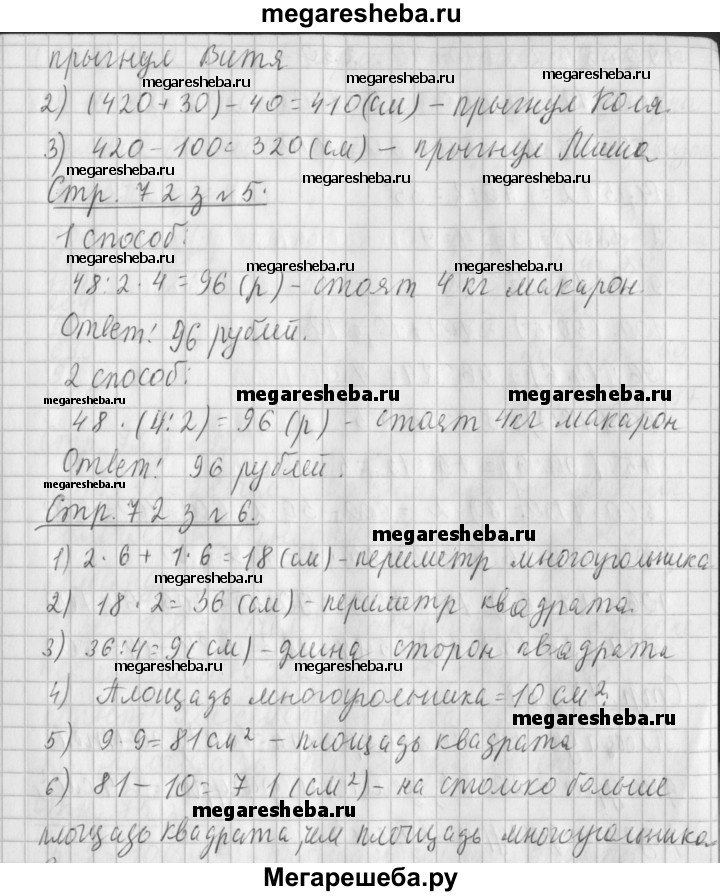 megaresheba.ru
прыгнул Витя
megaresheba.ru megaresheba.ru
2) (420+30)-40=410(см) - прыгнул Коля.
3) 420-100=320(см) - прыгнул Миша
megaresheba.ru megaresheba.ru megaresheba.ru
Стр. 72 з №5.
1 способ:
megaresheba.ru megaresheba.ru
48:2·4=96(р) - стоят 4 кг макарон.
Ответ! 96 рублей.
2 способ:
megaresheba.ru megaresheba.ru megaresheba.ru
48·(4:2)=96(р) - стоят 4кг макарон
Ответ! 96 рублей.
megaresheba.ru
Стр. 72 з №6.
megaresheba.ru
1) 2·6+1·6=18(см) - периметр многоугольника
megaresheba.ru
2) 18·2=36(см) - периметр квадрата.
3) 36:4=9(см) - длина сторон квадрата
megaresheba.ru megaresheba.ru
4) Площадь многоугольника=10см².
megaresheba.ru
5) 9·9=81см² - площадь квадрата
6) 81-10=71(см²) - на столко больше
megaresheba.ru
площадь квадрата, чем площадь многоугольника.
Мегарешеба.ру